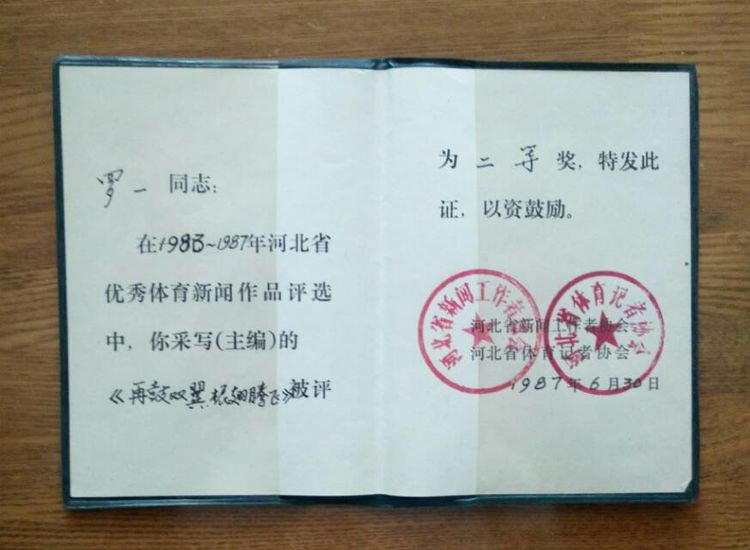 罗一同志：
在1983~1987年河北省
优秀体育新闻作品评选
中，你采写(主编)的
《再鼓双翼振翅腾飞》被评
为二等奖，特发此
证，以资鼓励。
河北省新闻工作者协会
河北省体育记者协会
河北省新闻工作者协会
河北省体育记者协会
1987年6月30日